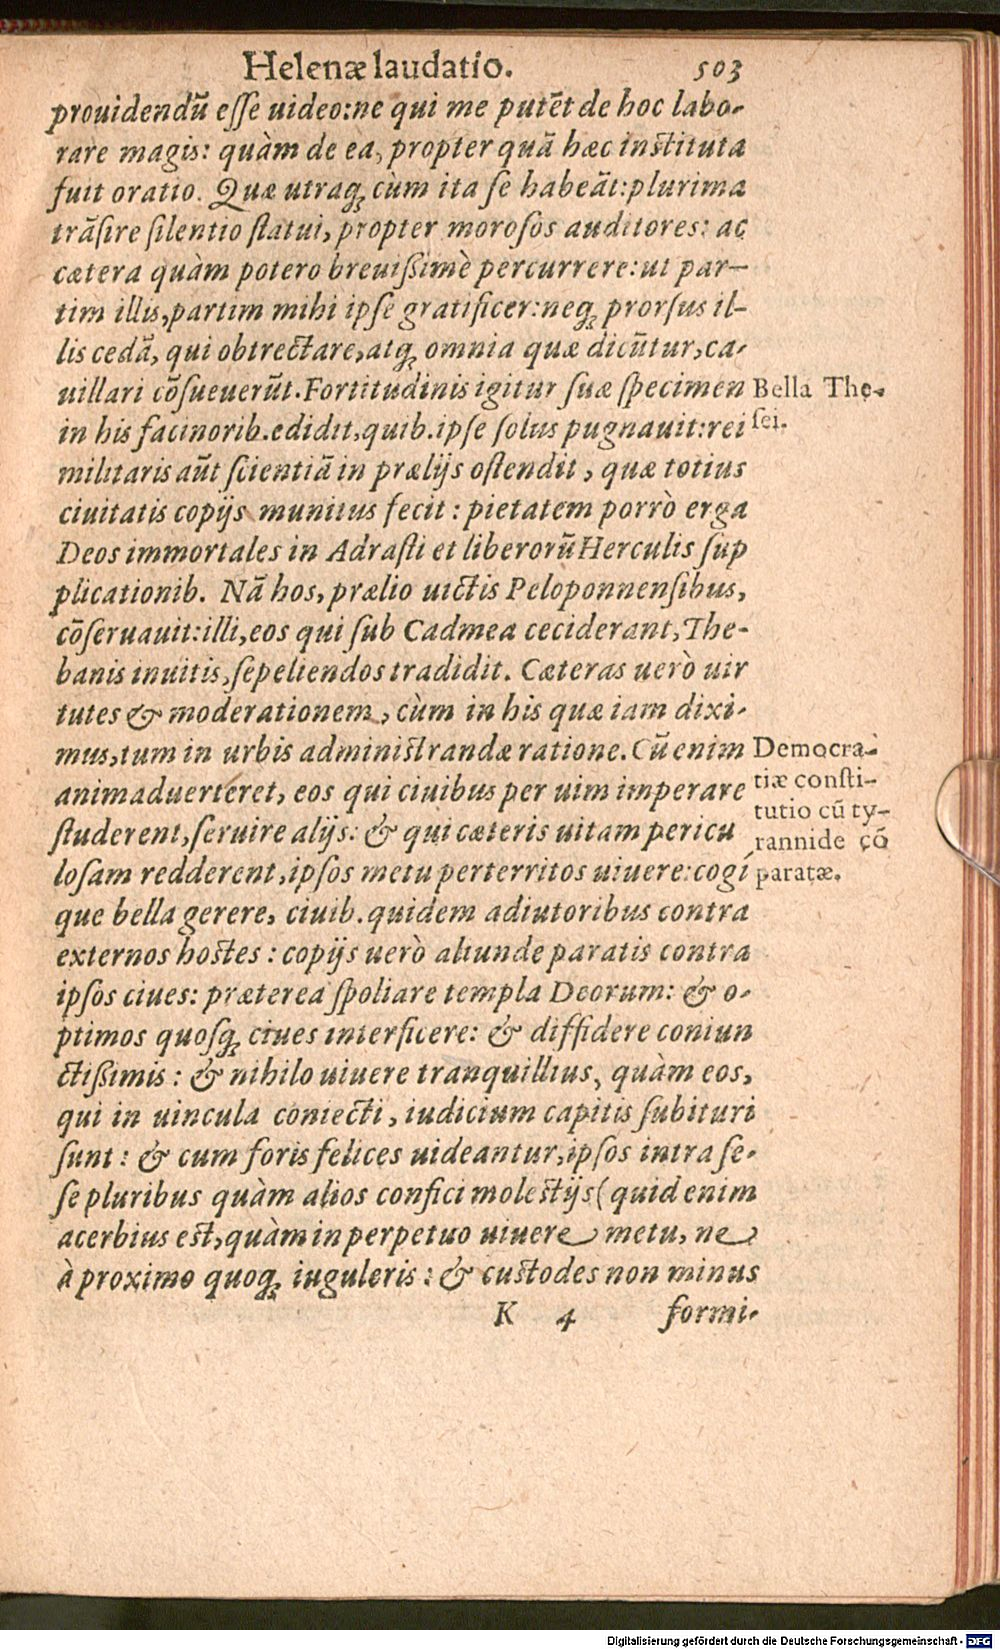 Helenæ laudatio. 503
prouidendū eſſe uideo: ne qui me putēt de hoc labo-
rare magis: quàm de ea, propter quā hæc inſtituta
fuit oratio. Quæ utraq; cùm ita ſe habeāt: plurima
trāſire ſilentio ſtatui, propter moroſos auditores: ac
cætera quàm potero breuißimè percurrere: ut par-
tim illis, partim mihi ipſe gratificer: neq; prorſus il-
lis cedā, qui obtrectare, atq; omnia quæ dicūtur, ca-
uillari cōſueuerūt. Fortitudinis igitur ſuæ ſpecimen
Bella The-
in his facinorib. edidit, quib. ipſe ſolus pugnauit: rei
ſei.
militaris aūt ſcientiā in prælijs oſtendit, quæ totius
ciuitatis copijs munitus fecit: pietatem porrò erga
Deos immortales in Adraſti et liberorū Herculis ſup
plicationib. Nā hos, prælio uictis Peloponnenſibus,
cōſeruauit: illi, eos qui ſub Cadmea ceciderant, The-
banis inuitis, ſepeliendos tradidit. Cæteras uerò uir
tutes & moderationem, cùm in his quæ iam dixi-
mus, tum in urbis adminiſtrandæ ratione. Cū enim
Democra-
animaduerteret, eos qui ciuibus per uim imperare
tiæ conſti-
ſtuderent, ſeruire alijs: & qui cæteris uitam pericu
tutio cū ty-
rannide cō
loſam redderent, ipſos metu perterritos uiuere: cogi
paratæ.
que bella gerere, ciuib. quidem adiutoribus contra
externos hoſtes: copijs uerò aliunde paratis contra
ipſos ciues: præterea ſpoliare templa Deorum: & o-
ptimos quoſq; ciues interficere: & diffidere coniun
ctißimis: & nihilo uiuere tranquillius, quàm eos,
qui in uincula coniecti, iudicium capitis ſubituri
ſunt: & cum foris felices uideantur, ipſos intra ſe-
ſe pluribus quàm alios confici moleſtijs (quid enim
acerbius eſt, quàm in perpetuo uiuere metu, ne
à proximo quoq; iuguleris: & cuſtodes non minus
K 4 formi-
Digitalisierung gefördert durch die Deutsche Forschungsgemeinschaft - DFG